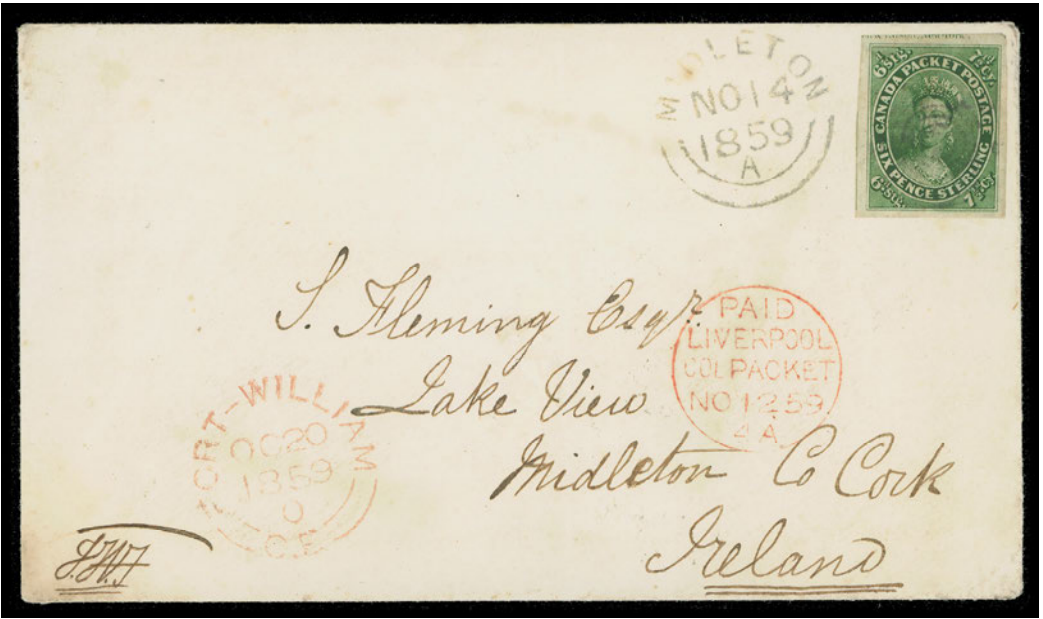 MIDLETON
NO 14
1859
A
6d Stg. 7½d Cy.
CANADA PACKET POSTAGE
SIX PENCE STERLING
6d Stg. 7½d Cy.
S. Fleming Esqr.
Lake View
Midleton Co Cork
Ireland
PAID
LIVERPOOL
COL PACKET
NO 12 59
4 A
FORT-WILLIAM
OC 20
1859
C.E